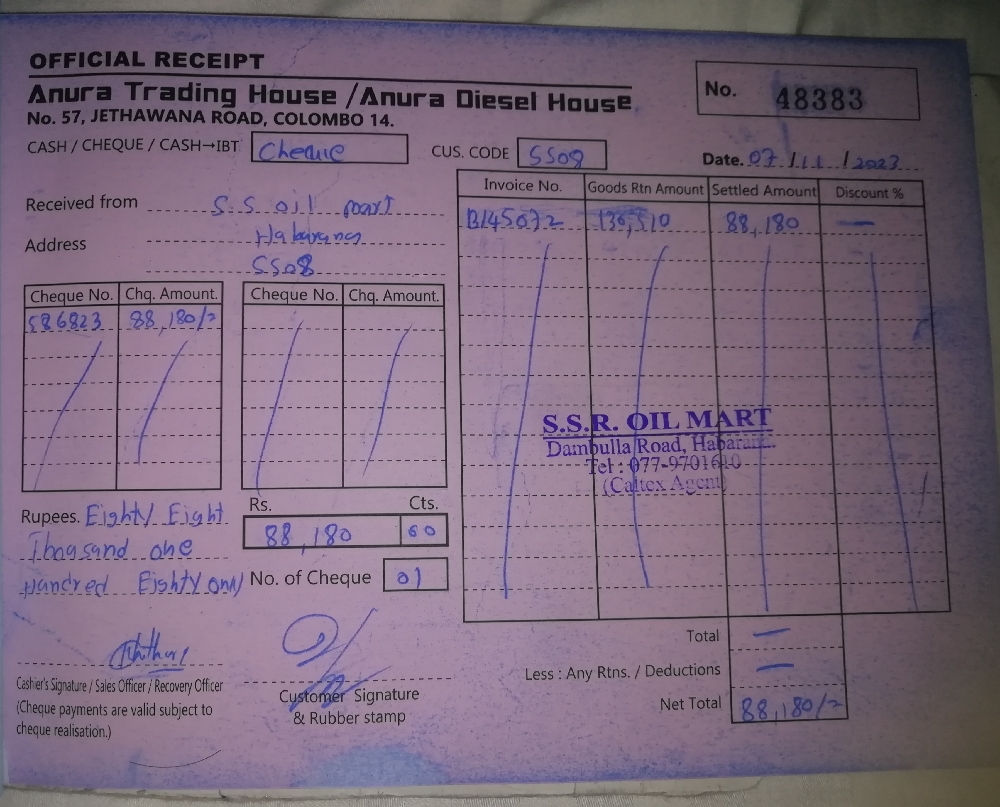 OFFICIAL RECEIPT
Anura Trading House / Anura Diesel House
No. 57, JETHAWANA ROAD, COLOMBO 14.
No. 48383
CASH / CHEQUE / CASH→IBT Cheque
CUS. CODE SS08
Date. 07/11/2023
Received from S.S oil mart
Address Habarana
SS08
Invoice No. Goods Rtn Amount Settled Amount Discount %
B145072 136,510 88,180 —
Cheque No. Chq. Amount. Cheque No. Chq. Amount.
586823 88,180/=
S.S.R. OIL MART
Dambulla Road,
Tel : 077-9701610
(Caltex Agent)
Rupees. Eighty Eight
Thousand one
Hundred Eighty only
Rs. Cts.
88,180 60
No. of Cheque 01
Total —
Less : Any Rtns. / Deductions —
Net Total 88,180/=
Cashier's Signature / Sales Officer / Recovery Officer
(Cheque payments are valid subject to
cheque realisation.)
Customer Signature
& Rubber stamp